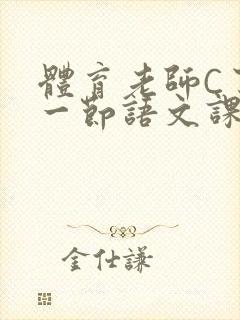 體育老師C
一節語文課
金仕謙